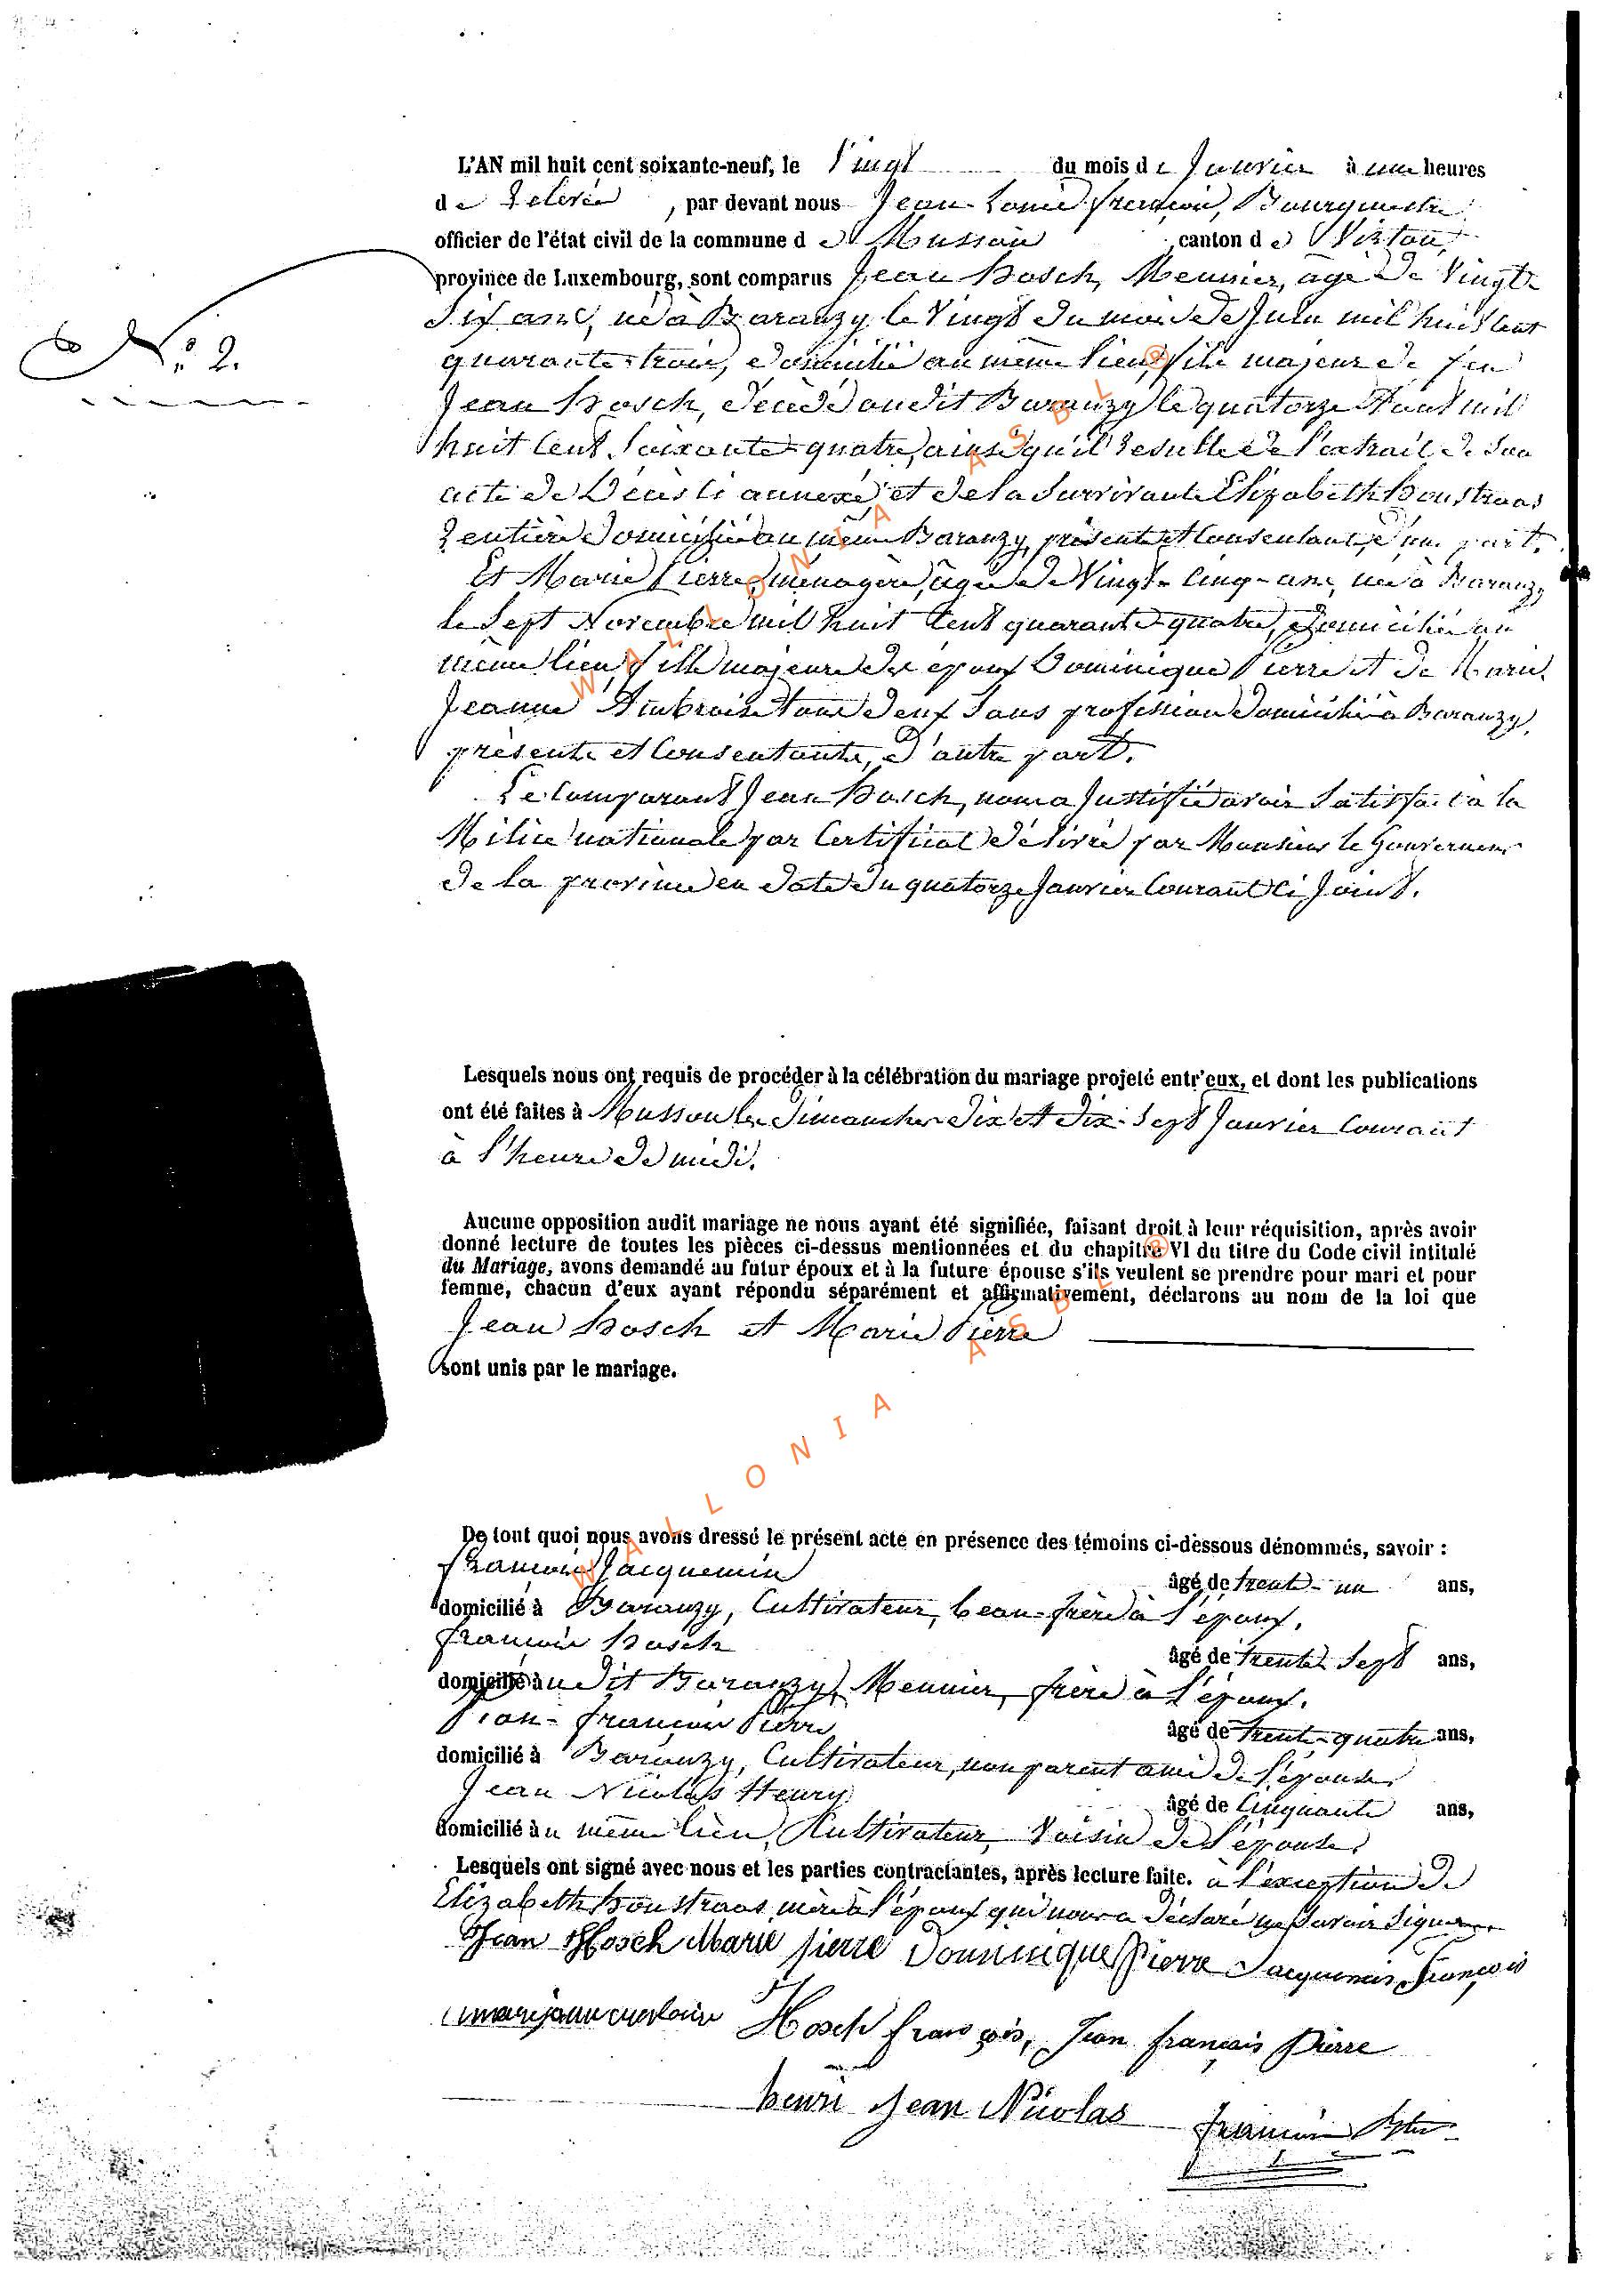 L'AN mil huit cent soixante-neuf, le Vingt du mois de Janvier à une heures
de Relevée, par devant nous Jean-Louis François, Bourgmestre,
officier de l'état civil de la commune de Musson canton de Virton,
province de Luxembourg, sont comparus Jean Hosch, Meunier, âgé de Vingt-
Six ans, né à Baranzy le Vingt du mois de Juin mil huit Cent
N.° 2.
quarante-trois, domicilié au même lieu, fils majeur de feu
Jean Hosch, décédé audit Baranzy le quatorze Août mil
huit Cent Soixante-quatre, ainsi qu'il Résulte de l'extrait de Son
acte de Décès ci annexé et de la Survivante Elizabeth Boustraas
Rentière domiciliée au même Baranzy, présente et Consentante, d'une part.
Et Marie Pierre, ménagère, âgée de Vingt-Cinq-ans, née à Baranzy
le Sept Novembre mil huit Cent quarante-quatre, domiciliée au
même lieu, fille majeure des époux Dominique Pierre et de Marie
Jeanne Ambroise tous deux Sans profession domiciliés à Baranzy,
présents et Consentants, d'autre part.
Le Comparant Jean Hosch, nous a Justifié avoir Satisfait à la
Milice nationale par Certificat délivré par Monsieur le Gouverneur
de la province en date du quatorze Janvier Courant Ci Joint.
Lesquels nous ont requis de procéder à la célébration du mariage projeté entr'eux, et dont les publications
ont été faites à Musson les Dimanches Dix et Dix-Sept Janvier Courant
à l'heure de midi.
Aucune opposition audit mariage ne nous ayant été signifiée, faisant droit à leur réquisition, après avoir
donné lecture de toutes les pièces ci-dessus mentionnées et du chapitre VI du titre du Code civil intitulé
du Mariage, avons demandé au futur époux et à la future épouse s'ils veulent se prendre pour mari et pour
femme, chacun d'eux ayant répondu séparément et affirmativement, déclarons au nom de la loi que
Jean Hosch et Marie Pierre
sont unis par le mariage.
De tout quoi nous avons dressé le présent acte en présence des témoins ci-dessous dénommés, savoir :
François Jacquemin âgé de trente-un ans,
domicilié à Baranzy, Cultivateur, beau-frère à l'époux.
François Hosch âgé de trente-Sept ans,
domicilié audit Baranzy, Meunier, frère à l'époux.
Jean-François Pierre âgé de trente-quatre ans,
domicilié à Baranzy, Cultivateur, non parent ami de l'épouse,
Jean Nicolas Henry âgé de Cinquante ans,
domicilié au même lieu, Cultivateur, Voisin de l'épouse,
Lesquels ont signé avec nous et les parties contractantes, après lecture faite. à l'exception de
Elizabeth Boustraas, mère à l'époux qui nous a déclaré ne Savoir Signer
Jean Hosch Marie pierre Dominique Pierre Jacquemin François
Hosch françois, Jean français Pierre
henri Jean Nicolas françois
WALLONIA ASBL ®
WALLONIA ASBL ®